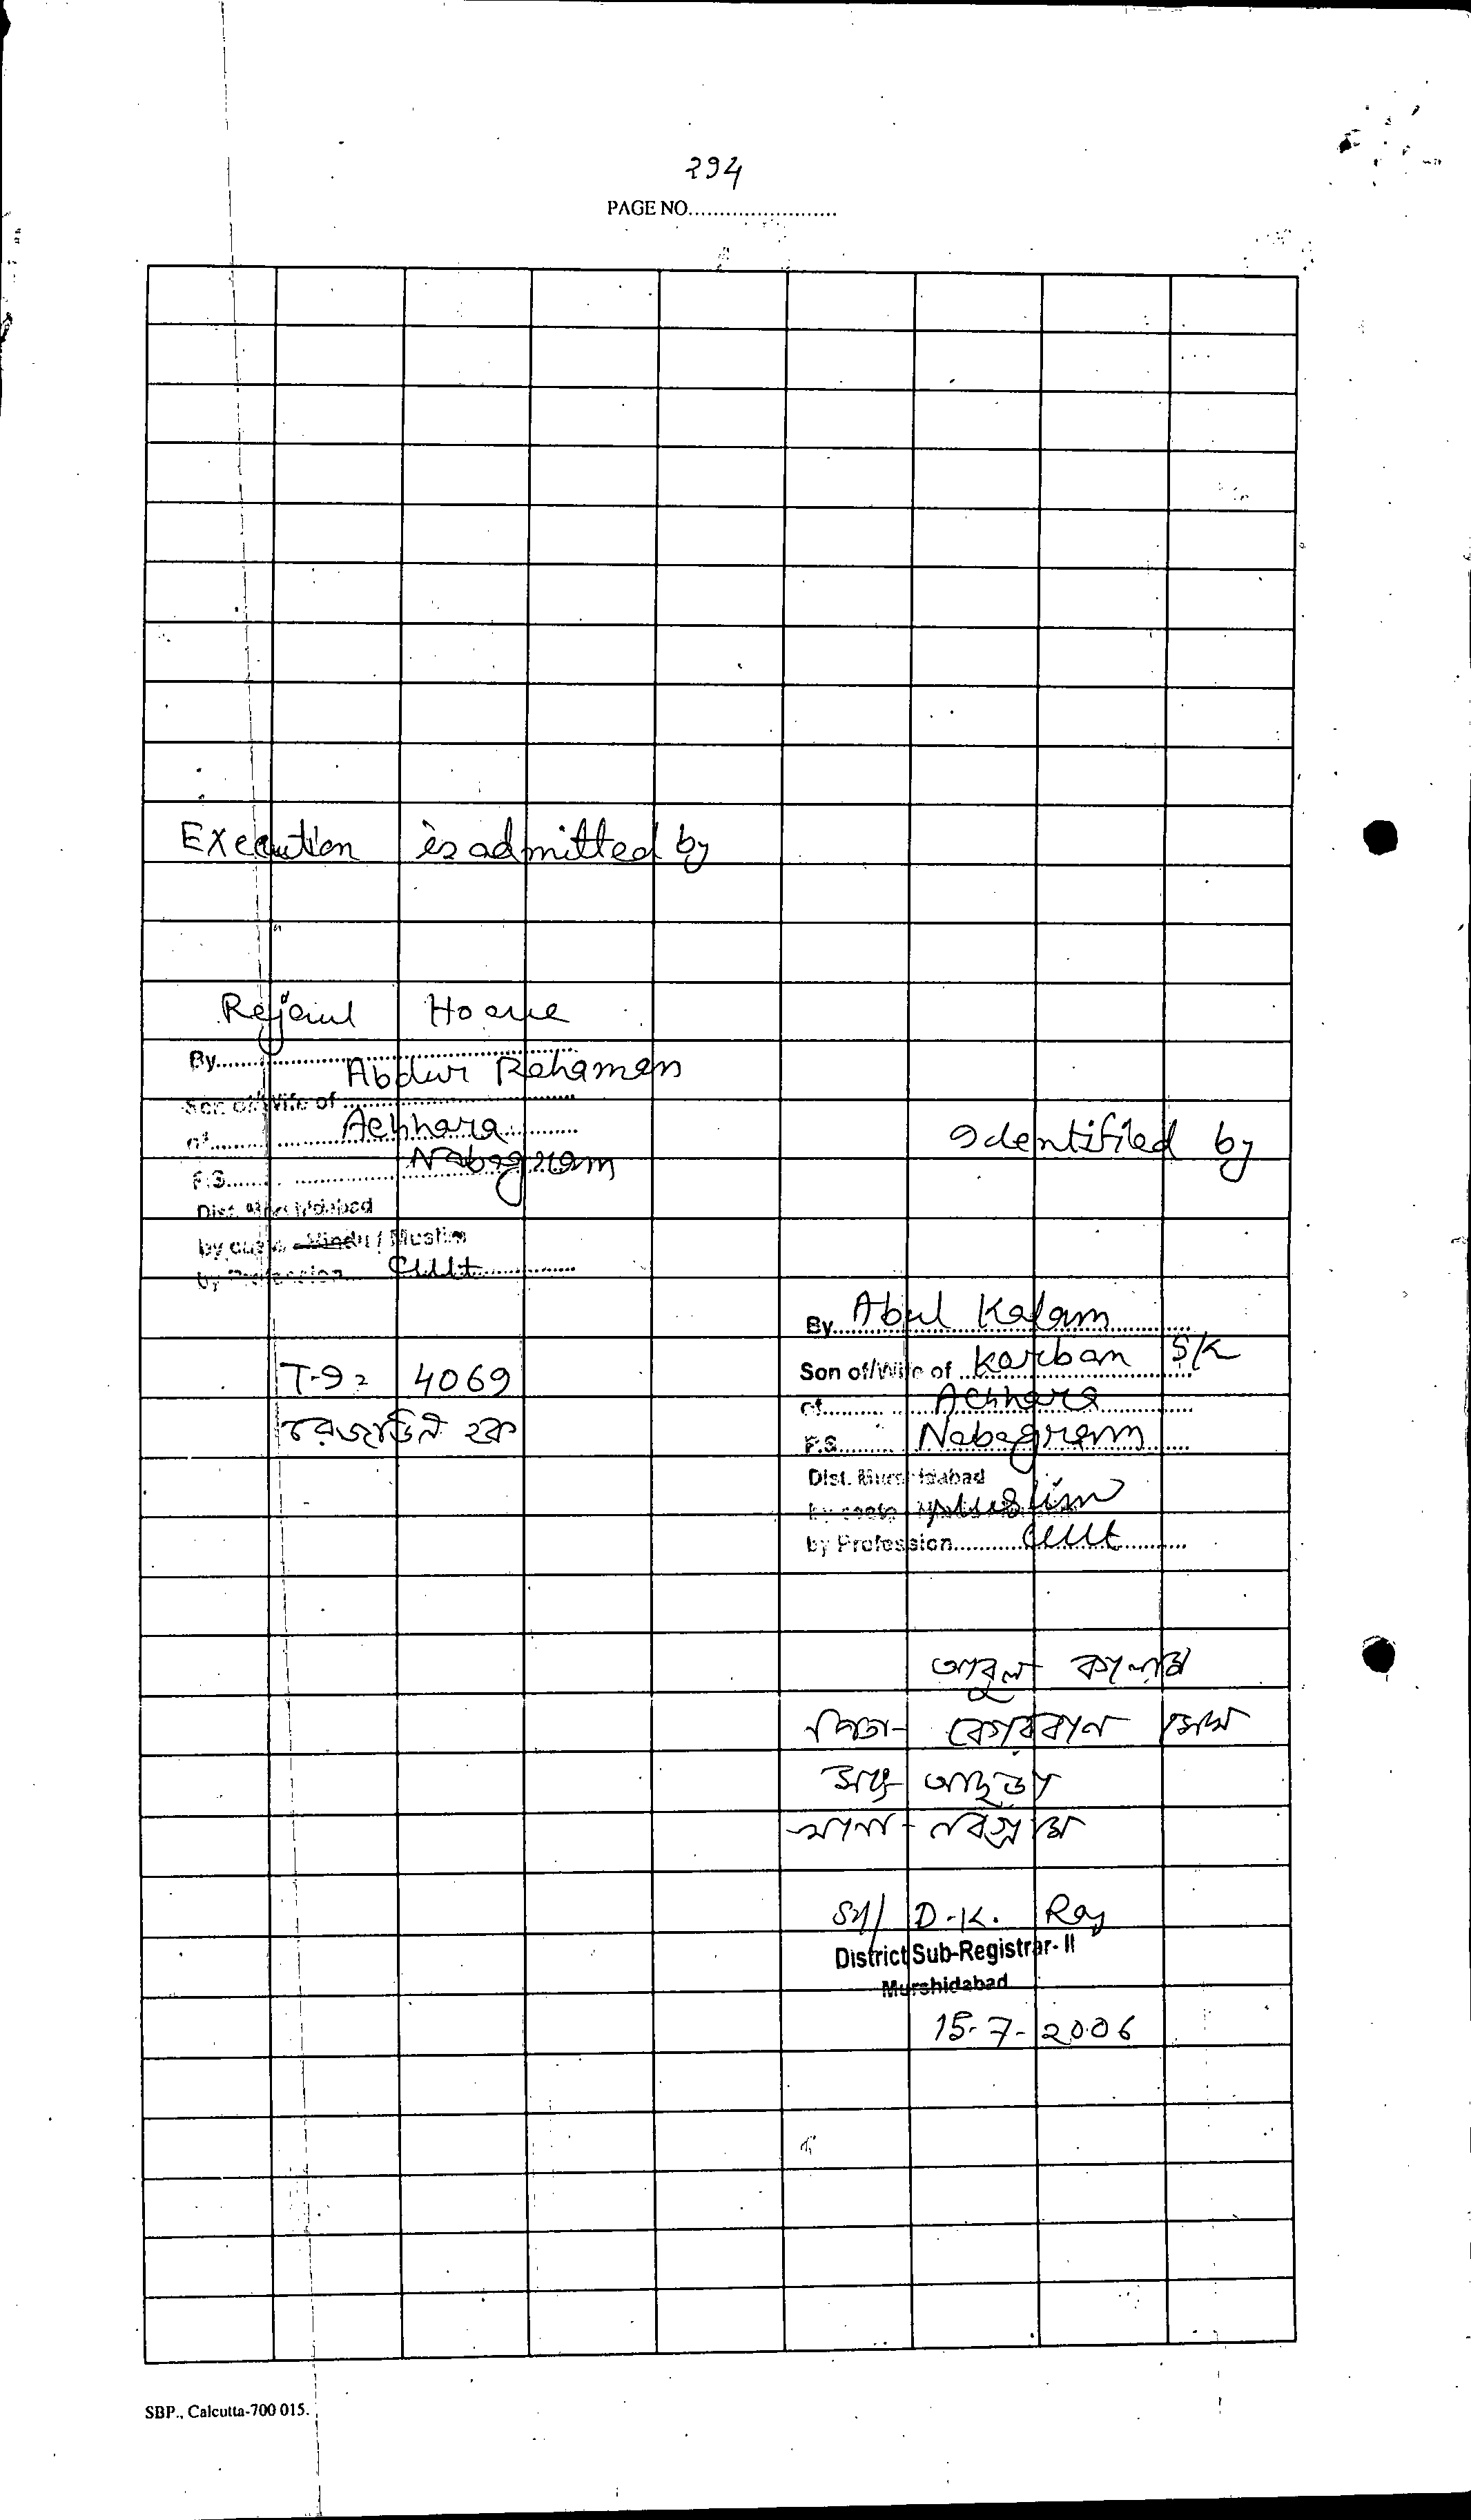 294
PAGE NO.
Execution is admitted by
Rejaul Hoque
By
Abdur Rehaman
Son of/Wife of
of Achhara
P.S. Nabagram
Dist. Murshidabad
by caste Hindu / Muslim
by Profession Cult
T-92 4069
রেজাউল হক
Identified by
By Abul Kalam
Son of/Wife of Karban SK
of Achhara
P.S. Nabagram
Dist. Murshidabad
by caste Muslim
by Profession Cult
আবুল কালাম
পিতা- কোরবান সেখ
সাং আছড়া
থানা - নবগ্রাম
Sd/ D.K. Ray
District Sub-Registrar- II
Murshidabad
15-7-2006
SBP., Calcutta-700 015.